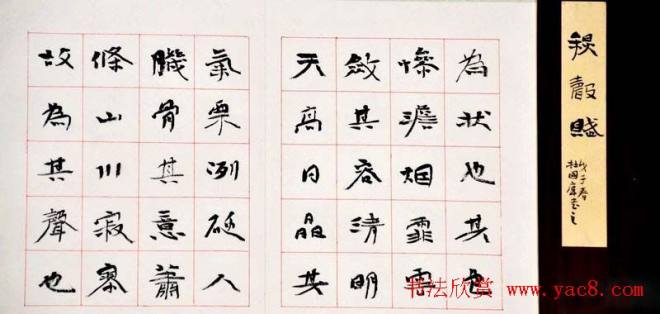 秋聲賦
戊子春
杜國書之
為狀也其色
慘澹烟霏雲
斂其容清明
天高日晶其
氣栗冽砭人
骨其意蕭
條山川寂寥
故為其聲也
书法欣赏 www.yac8.com